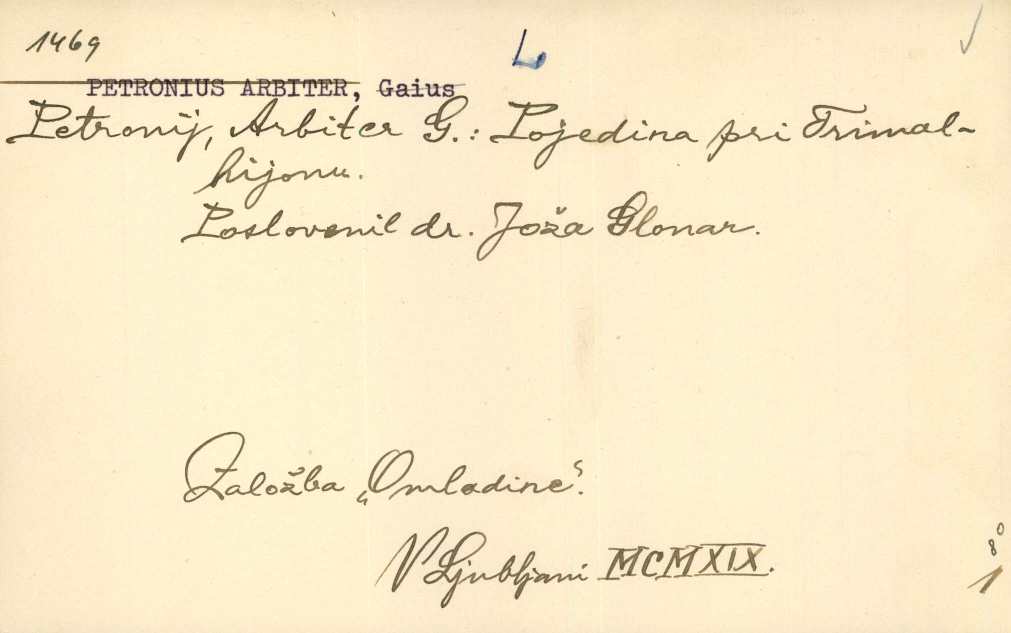 1469
PETRONIUS ARBITER, Gaius
Petronij, Arbiter G.: Pojedina pri Trimal-
hijonu.
Poslovenil dr. Joža Glonar.
Založba „Omladine“.
V Ljubljani MCMXIX.
8°
1